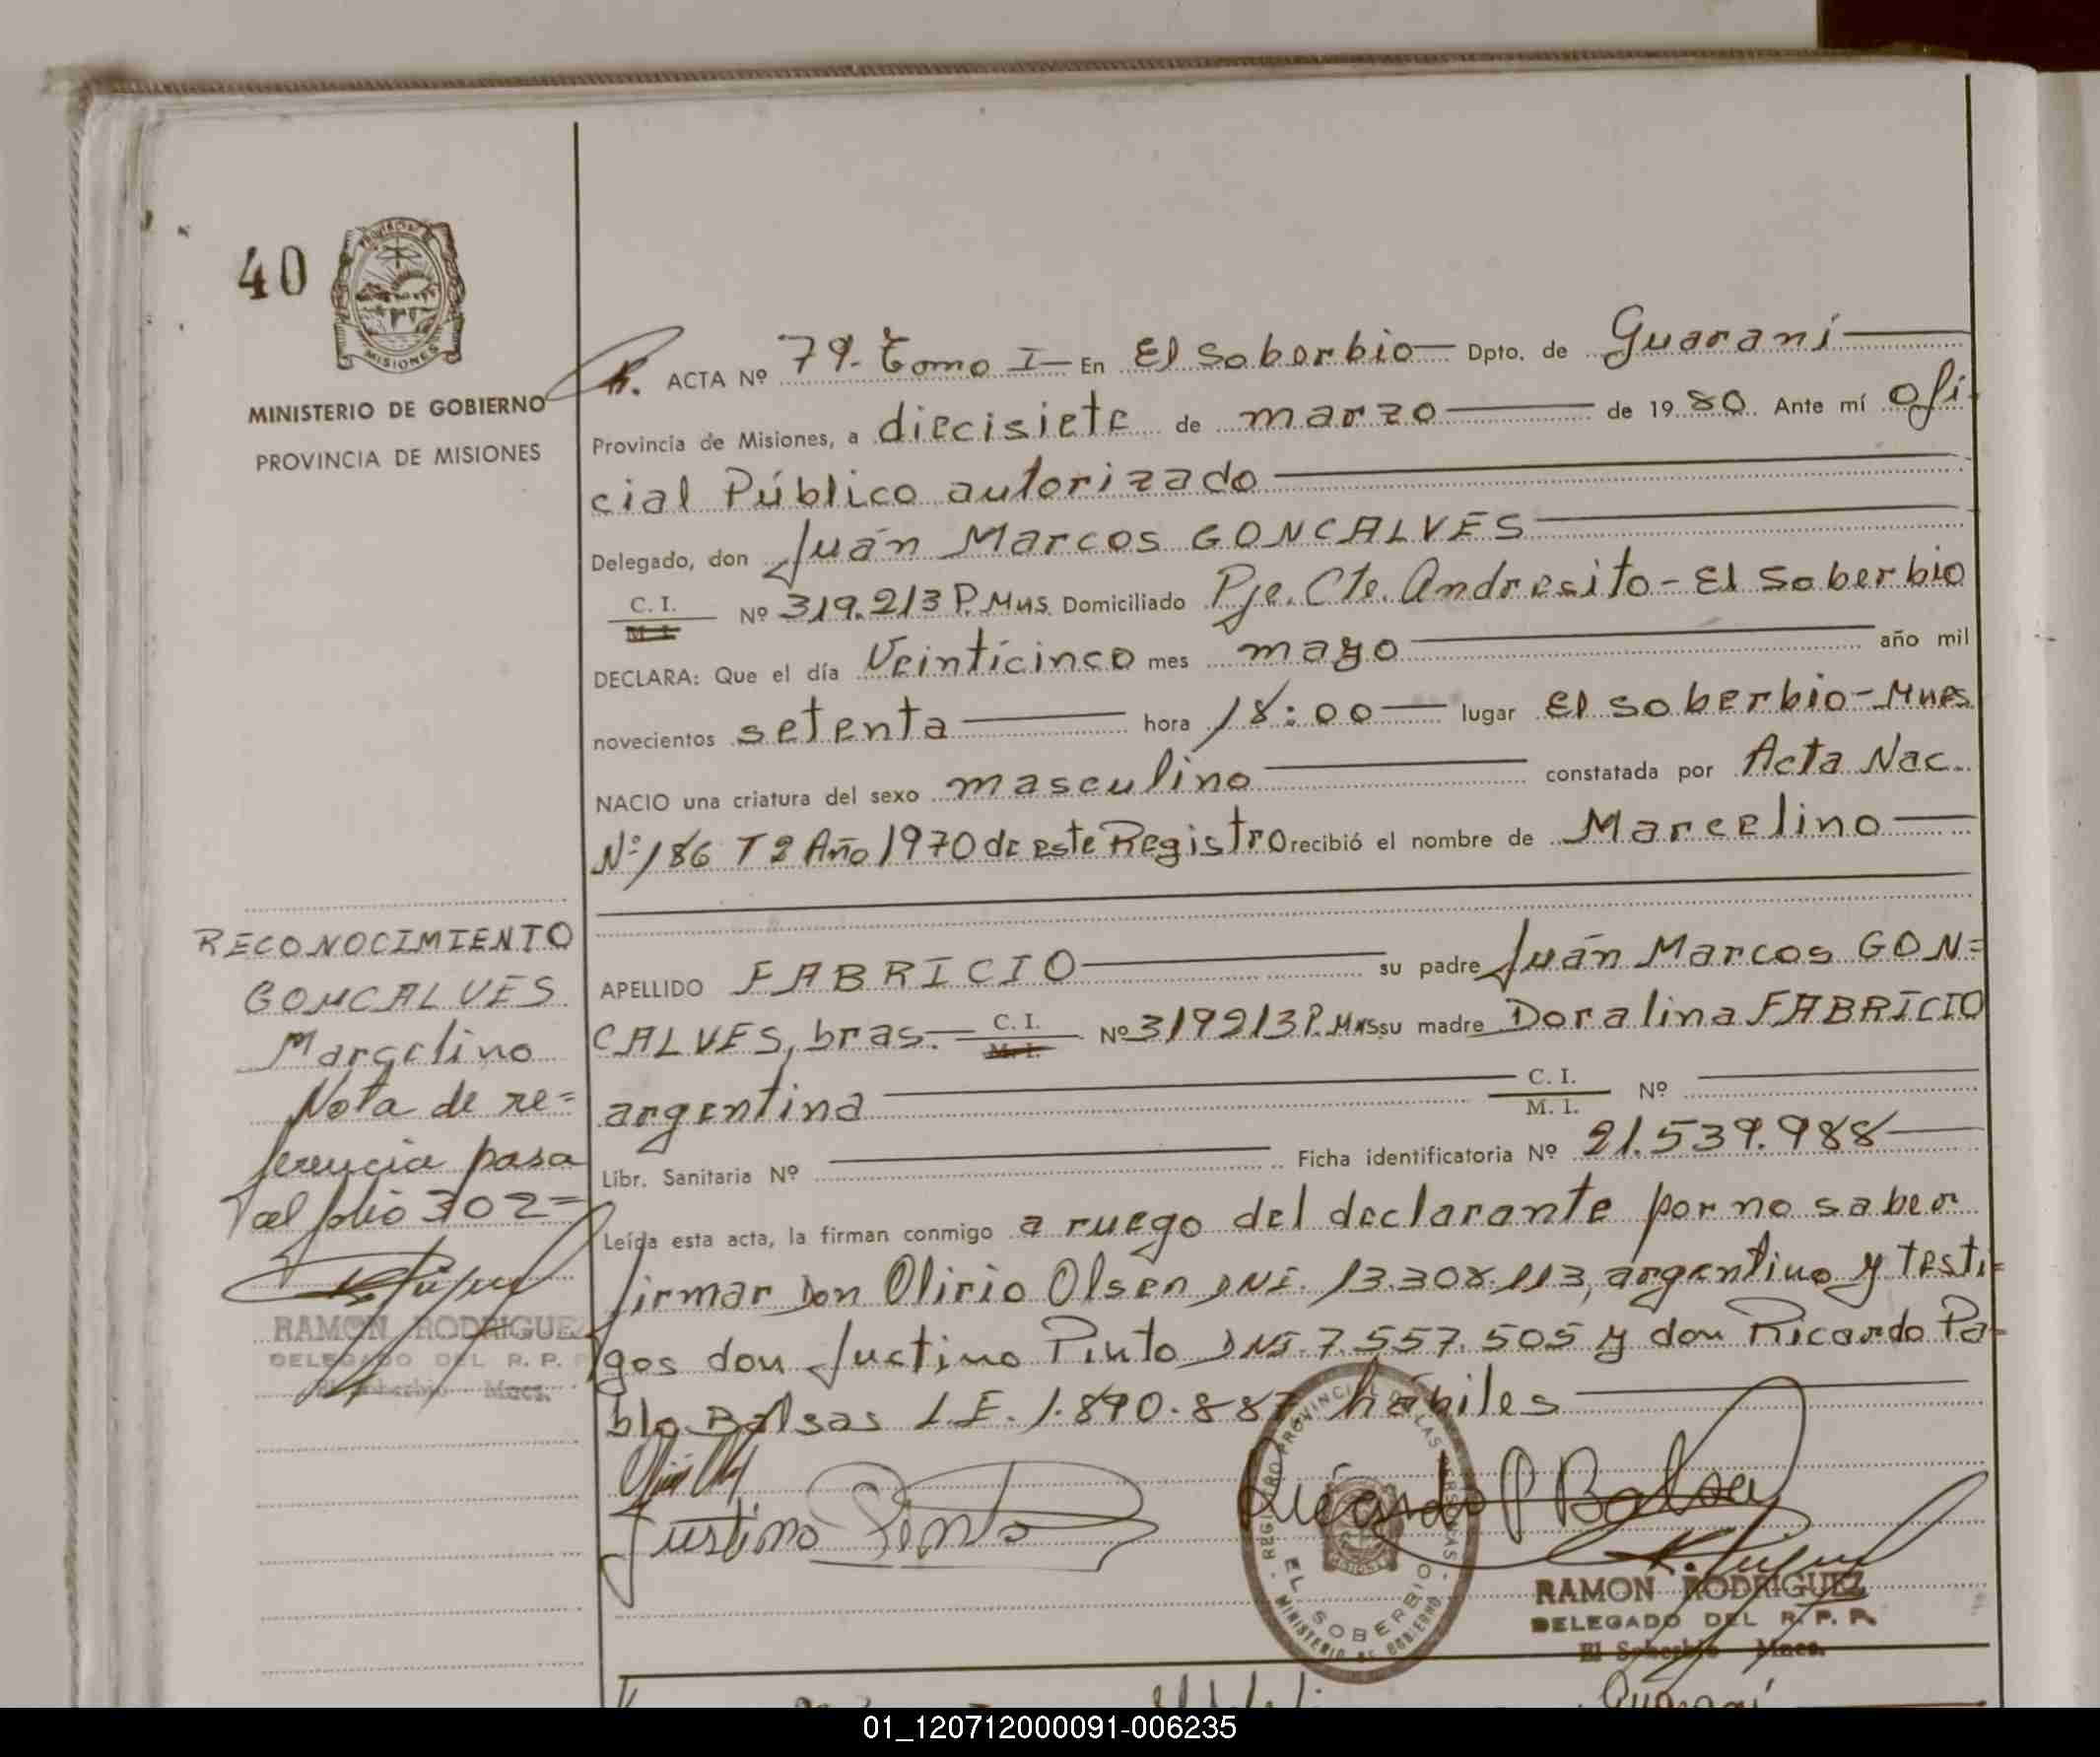 40
PROVINCIA DE
MISIONES
MINISTERIO DE GOBIERNO
PROVINCIA DE MISIONES
R. ACTA Nº 79- Tomo I- En El Soberbio- Dpto. de Guaraní
Provincia de Misiones, a diecisiete de marzo de 1980 Ante mí Ofi-
cial Público autorizado
Delegado, don Juán Marcos GONCALVES
C. I.
M. I.
Nº 319.213 P. Mns Domiciliado Pje. Cte. Andresito - El Soberbio
DECLARA: Que el día Veinticinco mes mayo año mil
novecientos setenta hora 18:00 lugar El Soberbio - Mnes
NACIO una criatura del sexo masculino constatada por Acta Nac.
Nº 186 T 2 Año 1970 de este Registro recibió el nombre de Marcelino
APELLIDO FABRICIO su padre Juán Marcos GON=
CALVES, bras. C. I. Nº 319213 P. Mns su madre Doralina FABRICIO
M. I.
argentina C. I. Nº
M. I.
Libr. Sanitaria Nº Ficha identificatoria Nº 21.539.988
Leída esta acta, la firman conmigo a ruego del declarante por no saber
firmar Don Olirio Olsen DNI. 13.308.113, argentino y testi=
gos don Justino Pinto DNI. 7.557.505 y don Ricardo Pa-
blo Balsas L.E. 1.890.887 hábiles
Justino Pinto
Ricardo P Balsa
REGISTRO PROVINCIAL DE LAS PERSONAS
MINISTERIO DE GOBIERNO
EL SOBERBIO
RAMON RODRIGUEZ
DELEGADO DEL R. P. P.
El Soberbio Mnes.
RECONOCIMIENTO
GONCALVES
Marcelino
Nota de re=
ferencia pasa
al folio 302=
RAMON RODRIGUEZ
DELEGADO DEL R. P. P.
El Soberbio Mnes.
01_120712000091-006235